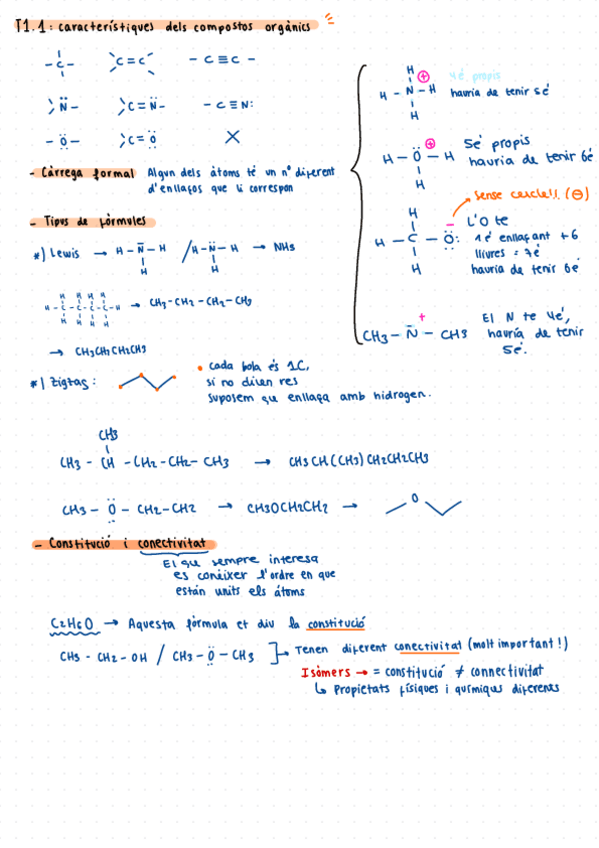 T1.1: característiques dels compostos orgànics
-C-
>C=C<
-C≡C-
>N̈-
>C=N̈-
-C≡N:
-Ö-
>C=Ö
X
- Càrrega formal
Algun dels àtoms té un nº diferent
d'enllaços que li correspon
H
H - N - H
H
⊕
4é propis
hauria de tenir 5é
H - Ö - H
H
⊕
5é propis
hauria de tenir 6é
Sense cercle!! (⊖)
H
H - C - Ö:
H
-
L'O te
1é enllaçant + 6
lliures = 7é
hauria de tenir 6é
+
CH3 - N - CH3
El N te 4é,
hauria de tenir
5é.
- Tipus de fórmules
*) Lewis → H - N̄ - H / H - N̈ - H → NH3
H
H
H H H H
H - C - C - C - C - H → CH3-CH2-CH2-CH3
H H H H
→ CH3CH2CH2CH3
*) Zigzag:
• cada bola és 1C,
si no diuen res
suposem qu enllaça amb hidrogen.
CH3
CH3 - CH - CH2 - CH2 - CH3 → CH3CH(CH3)CH2CH2CH3
CH3 - Ö - CH2 - CH2 → CH3OCH2CH2 →
O
- Constitució i conectivitat
El qu sempre interesa
es conèixer l'ordre en que
están units els átoms
C2H6O → Aquesta fórmula et diu la constitució
CH3 - CH2 - OH / CH3 - Ö - CH3 ]→ Tenen diferent conectivitat (molt important!)
Isòmers → = constitució ≠ connectivitat
↳ Propietats físiques i químiques diferents